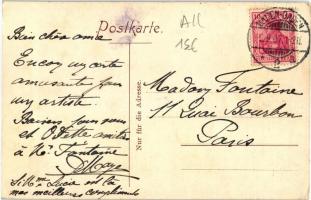 Postkarte.
All
156
Bien chère amie
Encore une carte
amusante pour
un artiste.
Baisers pour vous
et
à Mr. Fontaine
Si Mme Lucia est là
mes meilleurs compliments
Nur für die Adresse.
Madame Fontaine
11 Quai Bourbon
Paris